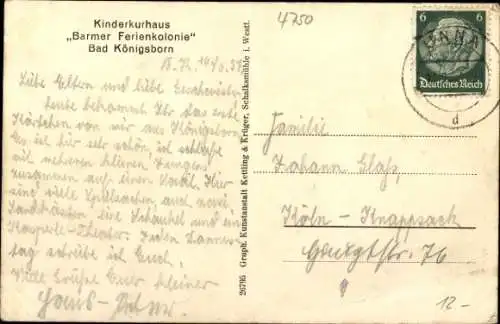 Kinderkurhaus
„Barmer Ferienkolonie"
Bad Königsborn
4750
Liebe Eltern und liebe Geschwister
Heute bekommt Ihr das erste
Kärtchen von mir aus Königsborn.
Es ist hier sehr schön, ich schlafe
mit mehreren kleinen Jungens
zusammen auf einen Saal. Hier
sind viele Spielsachen auch zwei
Sandkästen eine Schaukel und ein
Kasperle-Theater. Jeden Donners-
tag schreibe ich Euch.
Viele Grüße Euer kleiner
Hans
26795 Graph. Kunstanstalt Kettling & Krüger, Schalksmühle i. Westf.
6 6
Deutsches Reich
UNNA
d
Familie
Johann
Köln - Knappsack
76
12-